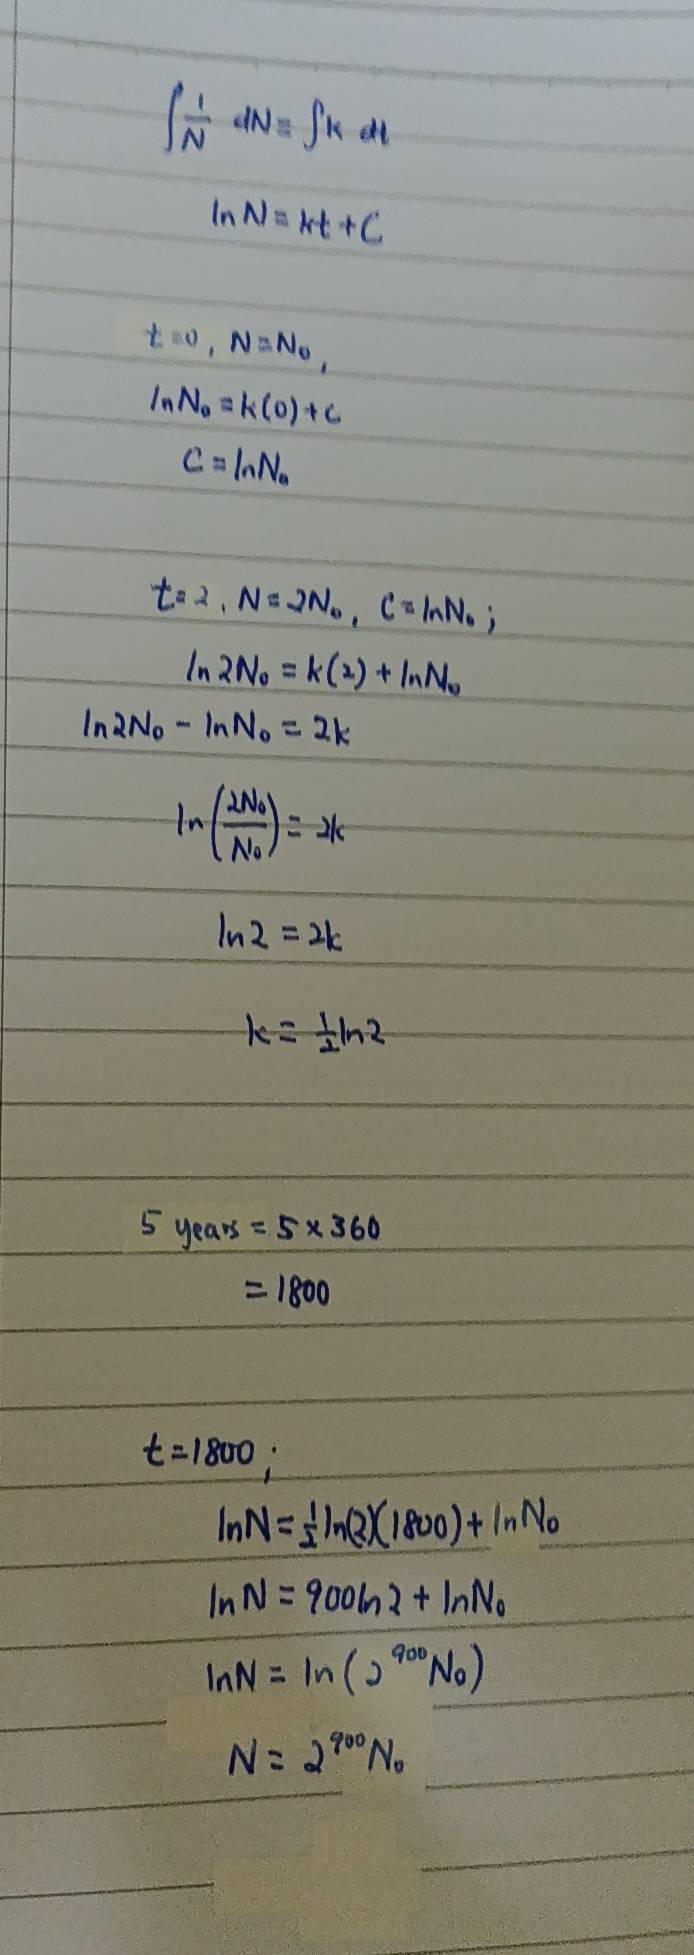 ∫ 1/N dN = ∫ k dt
ln N = kt + C
t=0, N=N₀,
lnN₀ = k(0)+c
C = lnN₀
t=2, N=2N₀, C=lnN₀;
ln2N₀ = k(2) + lnN₀
ln2N₀ - lnN₀ = 2k
ln(2N₀/N₀) = 2k
ln2 = 2k
k = ½ln2
5 years = 5 x 360
= 1800
t=1800;
lnN = ½ln(2)(1800) + lnN₀
lnN = 900ln2 + lnN₀
lnN = ln(2⁹⁰⁰N₀)
N = 2⁹⁰⁰N₀